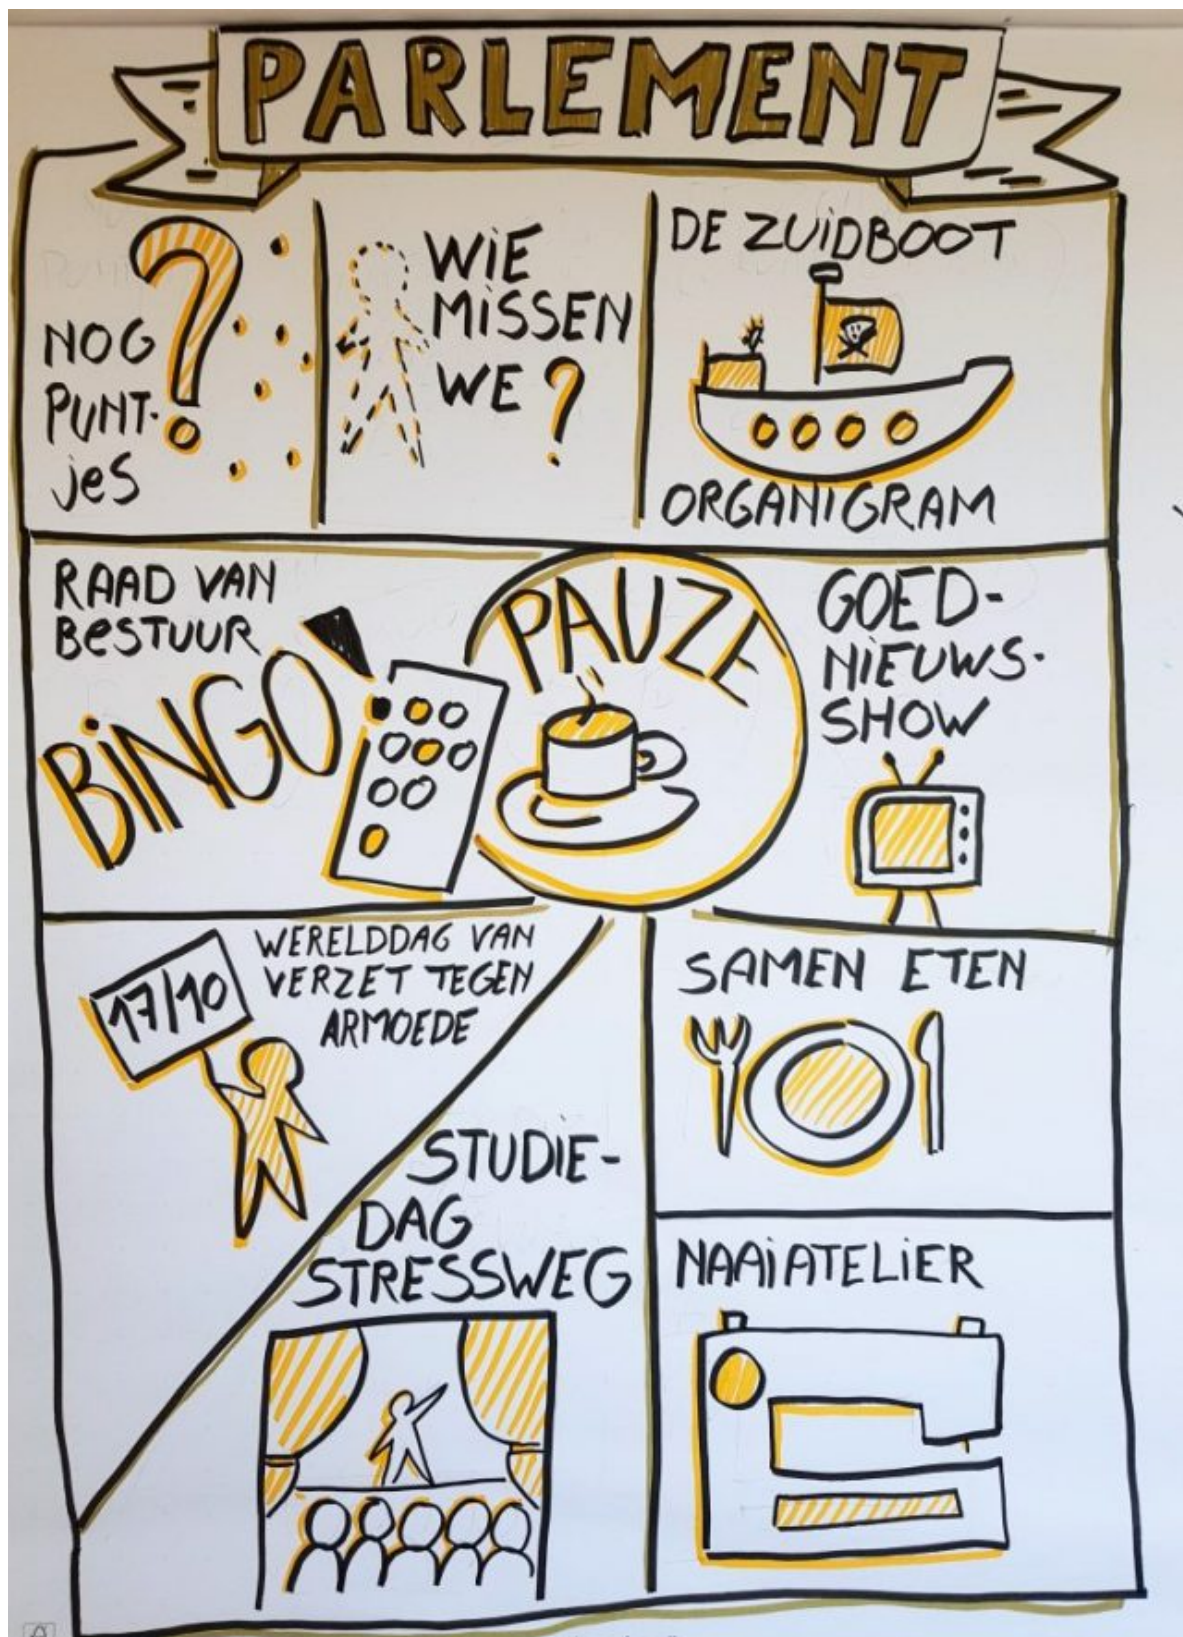 PARLEMENT
NOG
PUNT-
jES
WIE
MISSEN
WE ?
DE ZUIDBOOT
ORGANIGRAM
RAAD VAN
BESTUUR
BINGO
PAUZE
GOED-
NIEUWS-
SHOW
17/10
WERELDDAG VAN
VERZET TEGEN
ARMOEDE
STUDIE-
DAG
STRESSWEG
SAMEN ETEN
NAAIATELIER